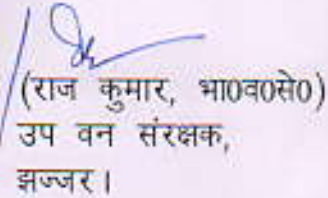 (राज कुमार, भा0व0से0)
उप वन संरक्षक,
झज्जर।